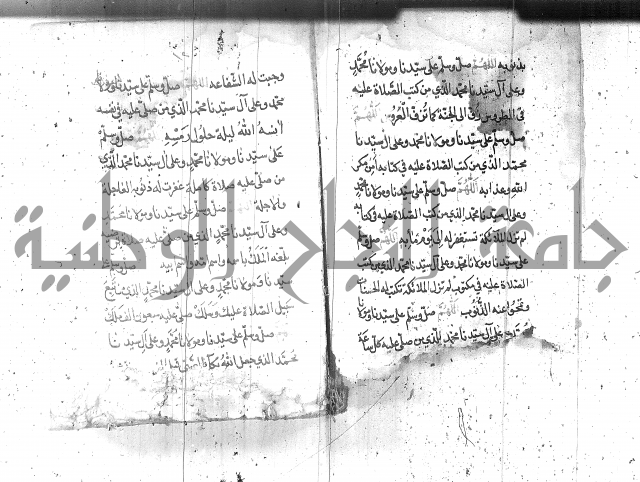 بذنوبه اللهم صل وسلم على سيدنا ومولانا محمد
وعلى آل سيدنا محمد الذي من كتب الصلاة عليه
في الطروس زف الى الجنة كما تزف العروس اللهم
صل وسلم على سيدنا ومولانا محمد وعلى آل سيدنا
محمد الذي من كتب الصلاة عليه في كتابه أمن مكر
الله وعذابه اللهم صل وسلم على سيدنا ومولانا محمد
وعلى آل سيدنا محمد الذي من كتب الصلاة عليه في كتابه
لم تزل الملائكة تستغفر له اللهم صل وسلم
على سيدنا ومولانا محمد وعلى آل سيدنا محمد الذي من كتب
الصلاة عليه في مكتوب لم تزل الملائكة تكتب له الحسنات
وتمحوا عنه الذنوب اللهم صل وسلم على سيدنا ومولانا
محمد وعلى آل سيدنا محمد الذي من صلى عليه كل ساعة
وجبت له الشفاعه اللهم صل وسلم على سيدنا ومولانا
محمد وعلى آل سيدنا محمد الذي من صلى عليه في نفسه
آنسه الله ليلة حلول رمسه اللهم صل وسلم
على سيدنا ومولانا محمد وعلى آل سيدنا محمد الذي
من صلى عليه صلاة كاملة غفرت له ذنوبه العاجلة
والآجلة اللهم صل وسلم على سيدنا ومولانا محمد
وعلى آل سيدنا محمد الذي من صلى عليه صلاة
بلغته الملائكة باسمه واسم ابيه اللهم صل وسلم على
سيدنا ومولانا محمد وعلى آل سيدنا محمد الذي
الصلاة عليك وملك صلى عليه سبعون الف ملك
اللهم صل وسلم على سيدنا ومولانا محمد وعلى آل سيدنا
محمد الذي جعل الله
جامعة النجاح الوطنية